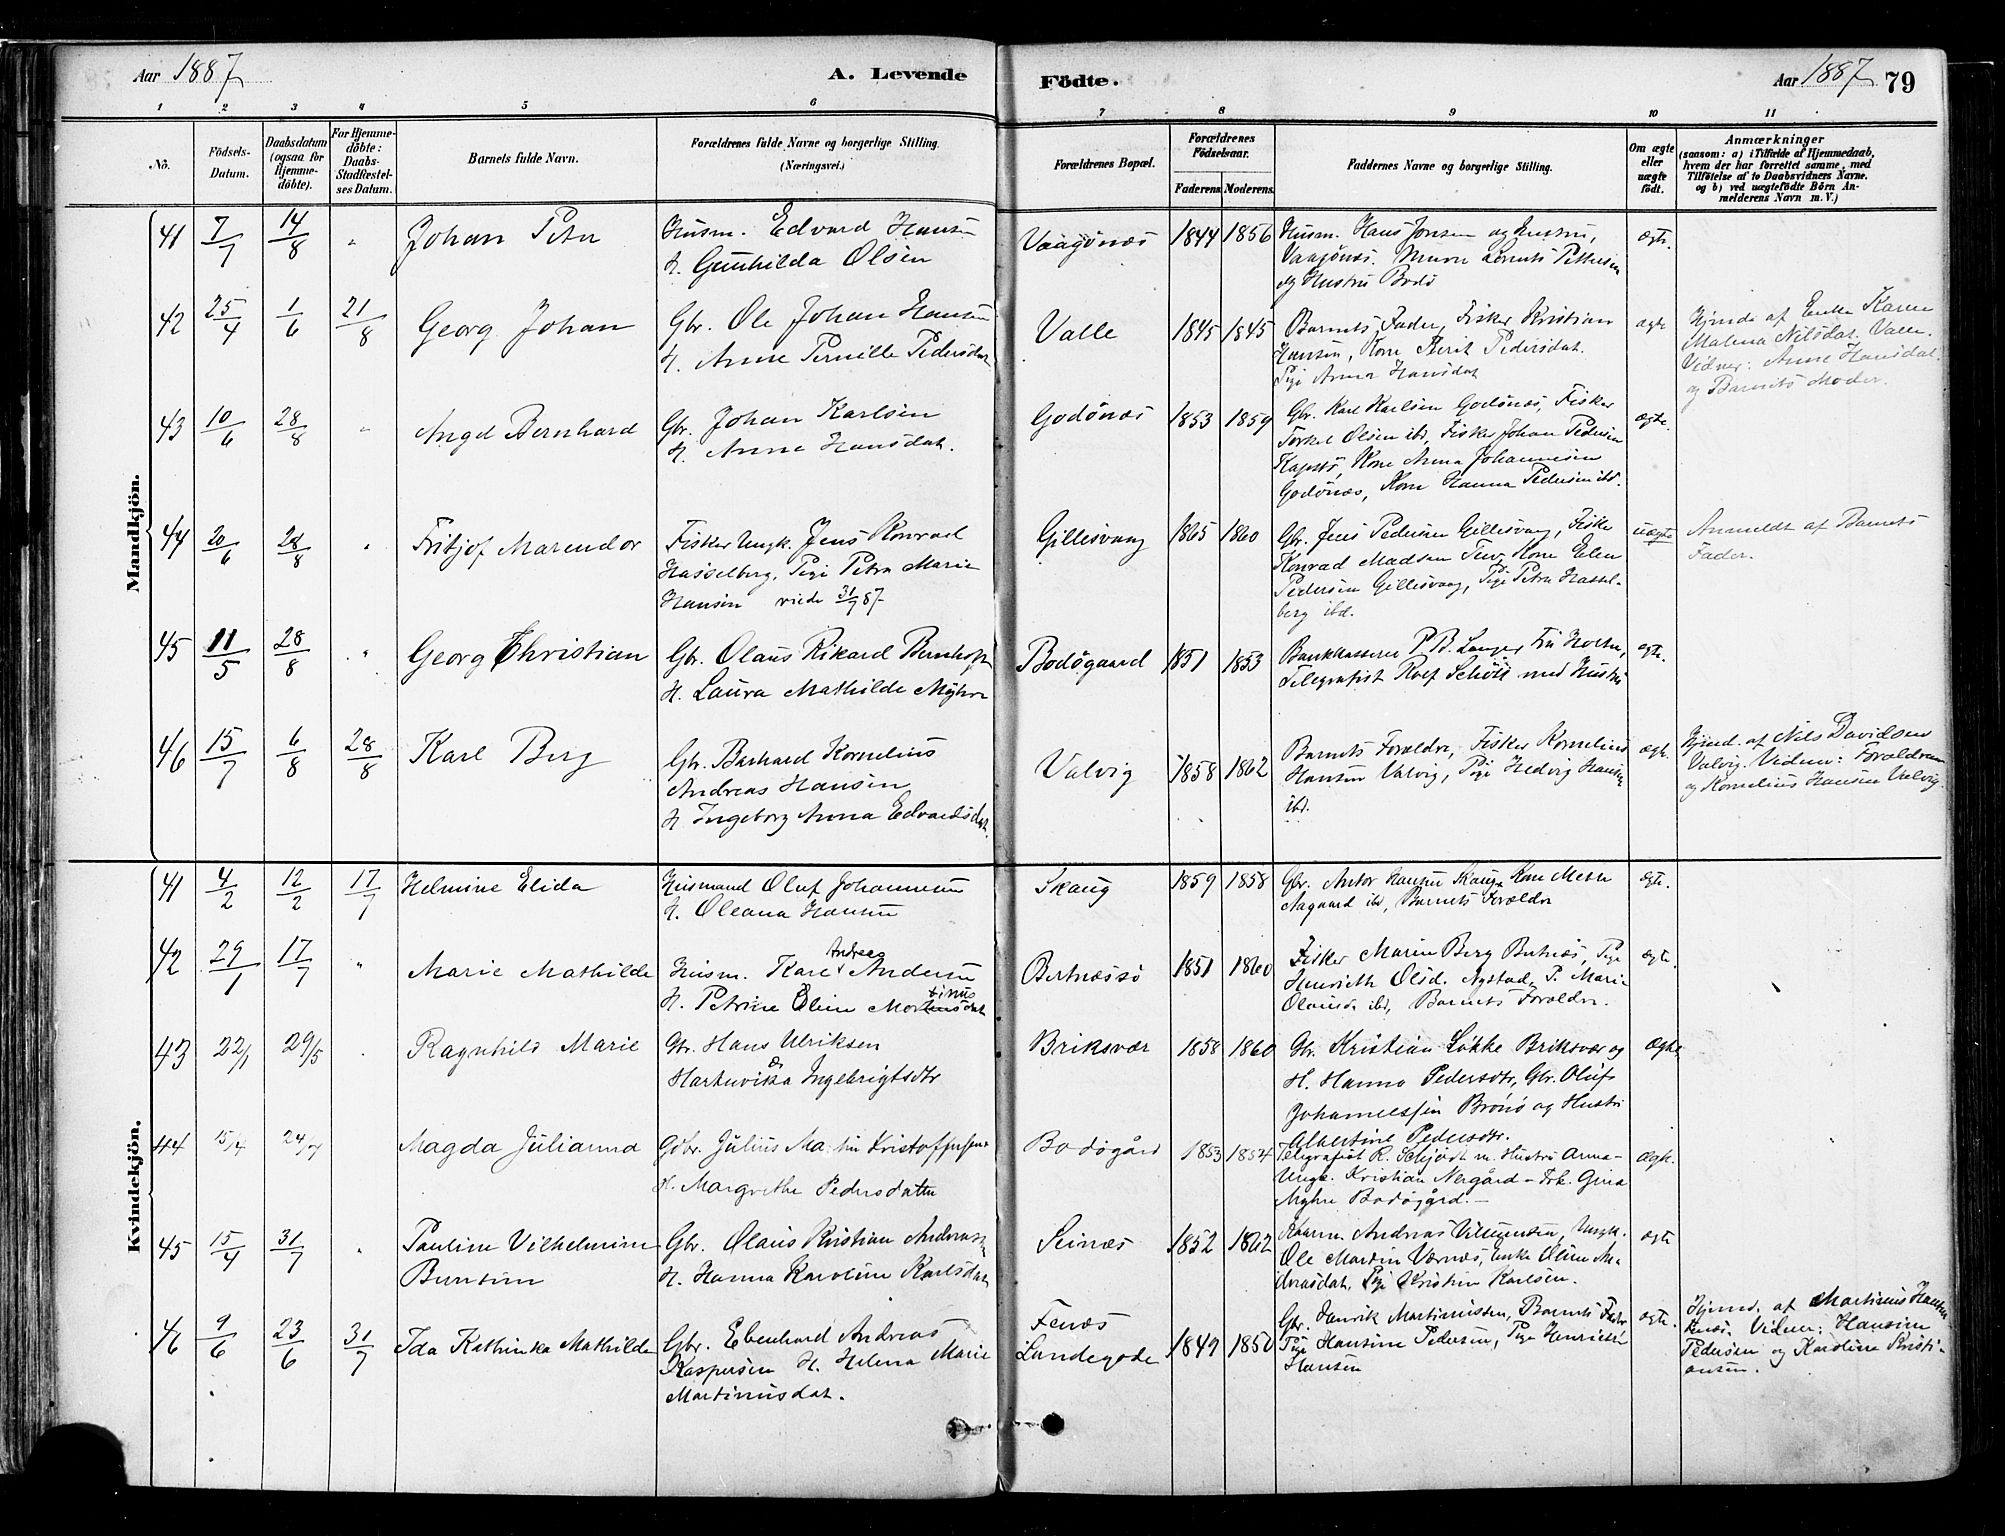 Aar 1887
A. Levende
Födte.
Aar 1887 79
1 2 3 4 5 6 7 8 9 10 11
No.
Födsels-
Datum.
Daabsdatum
(ogsaa for
Hjemme-
döbte).
For Hjemme-
döbte:
Daabs-
Stadfæstel-
ses Datum.
Barnets fulde Navn.
Forældrenes fulde Navne og borgerlige Stilling.
(Næringsvei.)
Forældrenes Bopæl.
Forældrenes
Födselsaar.
Faderens. Moderens.
Faddernes Navne og borgerlige Stilling.
Om ægte
eller
uægte
födt.
Anmærkninger
(saasom: a) i Tilfælde af Hjemmedaab,
hvem der har forrettet samme, med
Tilföielse af to Daabsvidners Navne.
og b) ved uægtefödte Börn An-
melderens Navn m. V.)
Mandkjön.
41 7/7 14/8 " Johan Peter
Husm. Edvard Hansen
H. Gunhilda Olsen
Vaagönæs 1844 1856
Husm. Hans Jensen og Hustru,
Vaagönæs. Murer Lorents Pettersen
og Hustru Bodö
ægte.
42 25/4 1/6 21/8 Georg Johan
Gbr. Ole Johan Hansen
H. Anne Pernille Pedersdat.
Valle 1845 1845
Barnets Fader, Fisker Kristian
Hansen, Kone Berit Pedersdat.
Pige Anna Hansdat
ægte
Hjmdø af Enke Karen
Malena Nilsdat. Valle.
Vidner: Anne Hansdat.
og Barnets Moder.
43 10/6 28/8 " Angel Bernhard
Gbr. Johan Karlsen
H. Anna Hansdat.
Godönæs 1853 1859
Gbr. Karl Karlsen Godönæs, Fisker
Torkel Olsen ibd, Fisker Johan Pedersen
Kapstö, Kone Anna Johannesen
Godönæs, Kone Hanna Pedersen ibd.
ægte.
44 20/6 28/8 " Fritjof Marendor
Fisker Ungk. Jens Konrad
Hasselberg, Pige Petra Marie
Hansen viede 31/7 87
Gillesvaag 1865 1860
Gbr. Jens Pedersen Gillesvaag, Fisker
Konrad Madsen Tuv, Kone Elen
Pedersen Gillesvaag, Pige Petra Hassel-
berg ibd.
uægte
Anmeldt af Barnets
Fader.
45 11/5 28/8 " Georg Christian
Gbr. Olaus Rikard Bernhoft
H. Laura Mathilde Myhre
Bodögaard 1851 1853
Bankkasserer P. B. Lange, Fru Holter,
Telegrafist Rolf Schött med Hustru
ægte.
46 15/7 6/8 28/8 Karl Berg
Gbr. Barhard Kornelius
Andreas Hansen
H. Ingeborg Anna Edvardsdat.
Valvig 1858 1862
Barnets Forældre, Fisker Kornelius
Hansen Valvig, Pige Hedvig Hansen
ibd.
ægte.
Hjmd. af Nils Davidsen
Valvig. Vidner: Forældrene
og Kornelius Hansen Valvig.
Kvindekjön.
41 4/2 12/2 17/7 Helmine Elida
Husmand Oluf Johannesen
H. Oleana Hansen
Skaug 1859 1858
Gbr. Antor Hansen Skaug, Kone Mette
Aagaard ibd, Barnets Forældre
ægte.
42 29/1 17/7 " Marie Mathilde
Andreas
Husm. Karl Andersen
tinus
H. Petrine Eline Mortensdat
Bertnæssö 1851 1860
Fisker Marin Berg Bertnæs, Pige
Henriette Olsd. Nystad, P. Marie
Olausd. ibd, Barnets Forældre.
ægte.
43 22/1 29/5 " Ragnhild Marie
Gbr. Hans Ulriksen
Hartuvika Ingebrigtsdtr
Briksvær 1858 1860
Gbr. Kristian Løkke Briksvær og
H. Hanna Pedersdtr, Gbr. Oluf
Johannessen Brönö og Hustru
Albertine Pedersdtr.
ægte
44 15/4 24/7 Magda Julianna
Gdbr. Julius Martin Kristoffersen
H. Margrethe Pedersdatter
Bodögård 1853 1854
Telegrafist R. Schjödt m. Hustru Anna–
Ungk. Kristian Nergård – Frk. Gina
Myhre Bodögård. –
ægte.
45 15/4 31/7 " Pauline Vilhelmine
Buntine
Gbr. Olaus Kristian Andreass.
H. Hanna Karoline Karlsdat
Seinæs 1852 1862
Andreas Villumsen, Ungk.
Ole Martin Værnæs, Enke Oline An-
dreasdat, Pige Kristine Karlsen.
ægte
46 9/6 23/6 31/7 Ida Kathinka Mathilde
Gbr. Ebenhard Andreas
Kaspersen H. Helena Marie
Martinusdat.
Fenæs
Landegode 1849 1850
Gbr. Henrik Martinussen, Barnets Fader
Pige Hansine Pedersen, Pige Henriette
Hansen
ægte.
Hjmd. af Martinus Hansen
Fenæs. Vidner: Hansine
Pedersen og Karoline Kristi-
ansen.